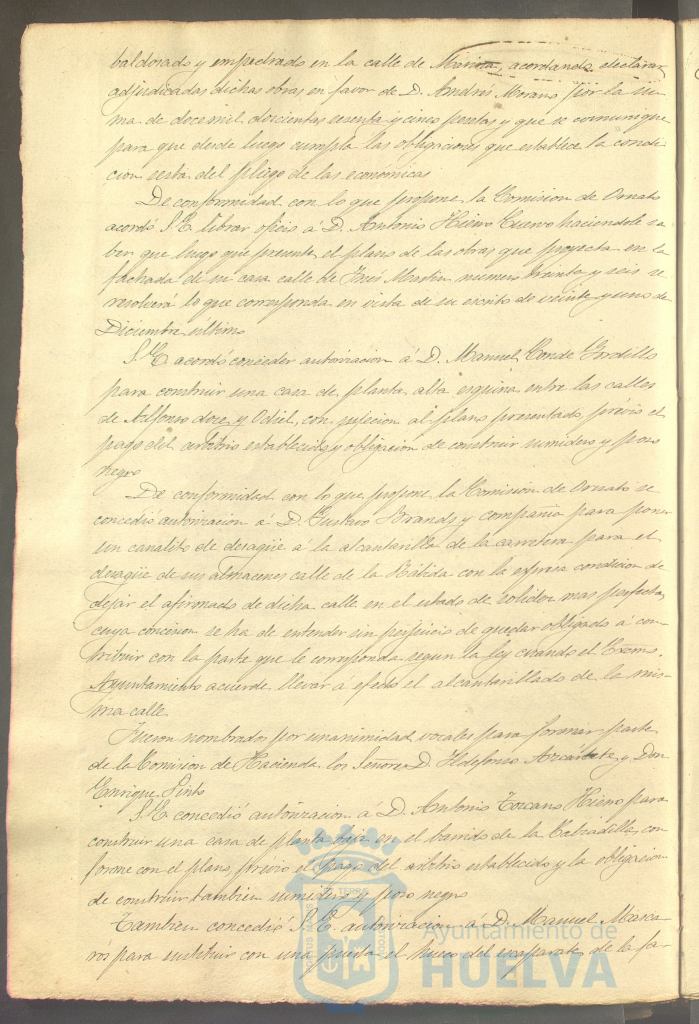 baldosado y empedrado en la calle de Marina, acordando declarar
adjudicadas dichas obras en favor de D. Andrés Morano por la su-
ma de doce mil doscientas sesenta y cinco pesetas y que se comunique
para que desde luego cumpla las obligaciones que establece la condi-
cion sesta del pliego de las economicas
De conformidad con lo que propone la Comision de Ornato
acordó S.E. librar oficio á D. Antonio Hierro Cuervo haciendole sa-
ber que luego que presente el plano de las obras que proyecta en la
fachada de su casa calle de Inés Martin numero treinta y seis se
resolverá lo que corresponda en vista de su escrito de veinte y uno de
Diciembre último
S.E. acordó conceder autorizacion á D. Manuel Conde Gordillo
para construir una casa de planta alta esquina entre las calles
de Alfonso doce y Odiel, con sujecion al plano presentado, previo el
pago del arbitrio establecido y obligacion de construir sumidero y pozo
negro
De conformidad con lo que propone la Comision de Ornato se
concedió autorizacion á D. Gustavo Brandt y compañia para poner
un canalito de desagüe á la alcantarilla de la carretera para el
desagüe de sus almacenes calle de la Rábida con la espresa condicion de
dejar el afirmado de dicha calle en el estado de solidez mas perfecta,
cuya concesion se ha de entender sin perjuicio de quedar obligado á con-
tribuir con la parte que le corresponda segun la ley cuando el Excmo.
Ayuntamiento acuerde llevar a efecto el alcantarillado de la mis-
ma calle.
Fueron nombrados por unanimidad vocales para formar parte
de la Comision de Hacienda los Señores D. Ildefonso Azcárate y Don
Enrique Pinto
S.E. concedió autorizacion á D. Antonio Toscano Hierro para
construir una casa de planta baja en el barrio de la Calzadilla, con-
forme con el plano, previo el pago del arbitrio establecido y la obligacion
de construir tambien sumidero y pozo negro
Tambien concedió S.E. autorizacion á D. Manuel Masca-
rós para sustituir con una puerta el hueco del escaparate de la fa-
Ayuntamiento de
HUELVA